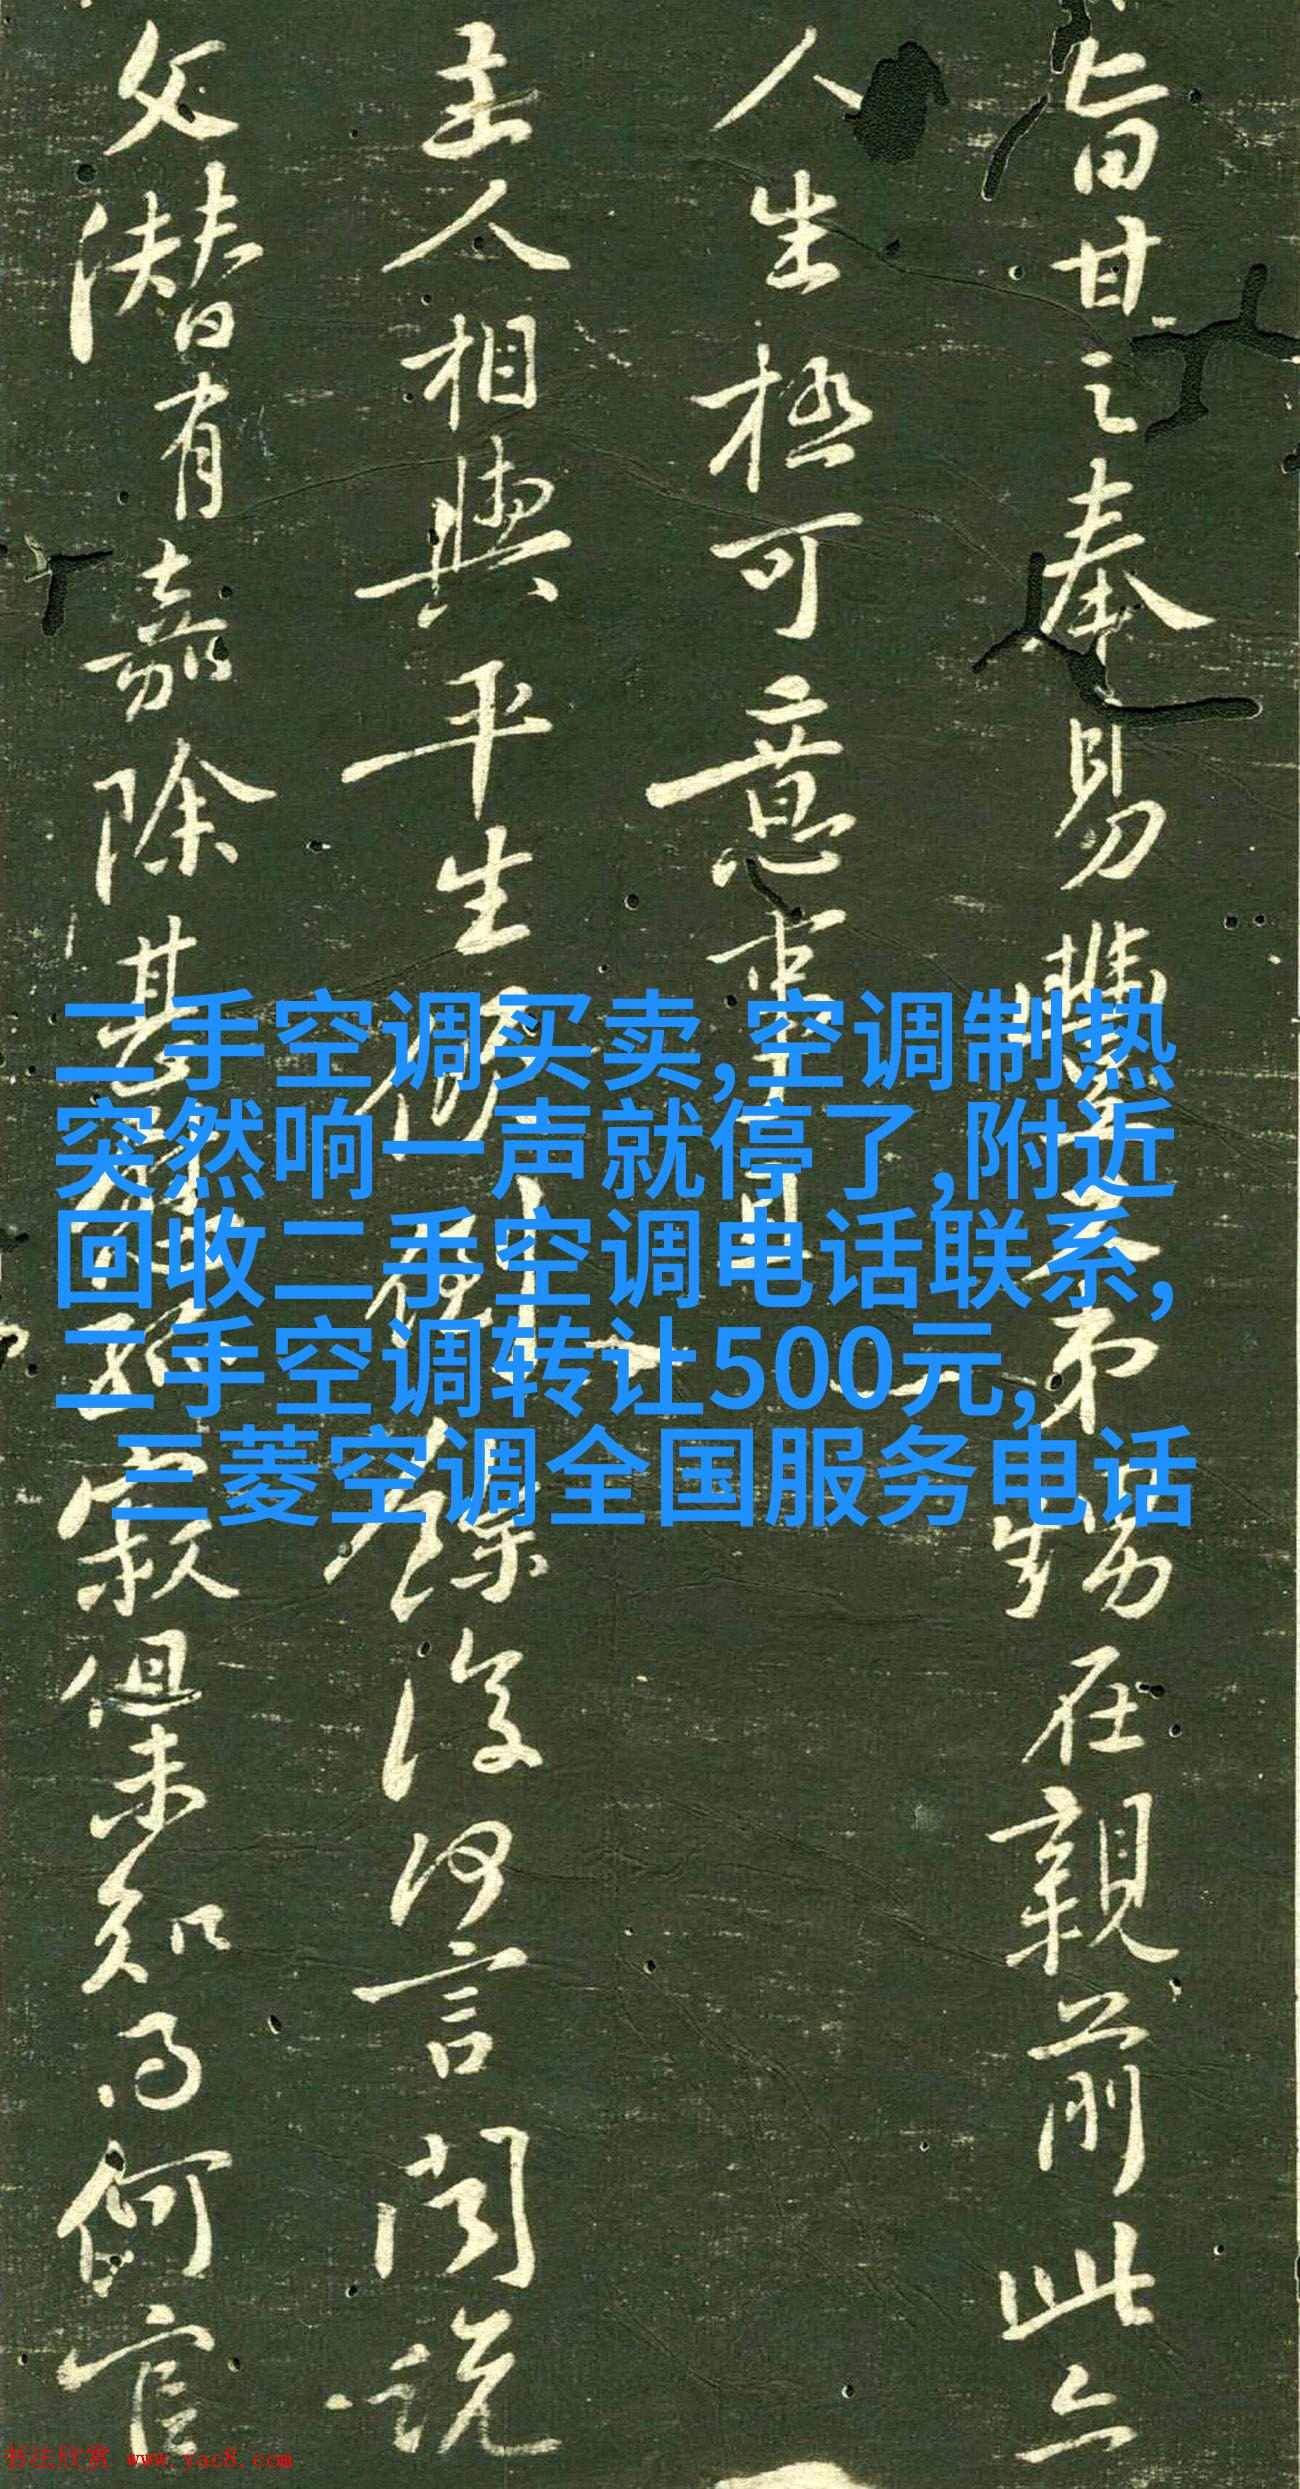 旨甘之奉易豐弟甥在親前此亦
人生極可意事耳
主人相與平生復何言聞說
父潛有嘉除甚慰孤寂但未知得何官
二手空调买卖,空调制热
突然响一声就停了,附近
回收二手空调电话联系,
二手空调转让500元,
三菱空调全国服务电话
书法欣赏 www.yac8.com